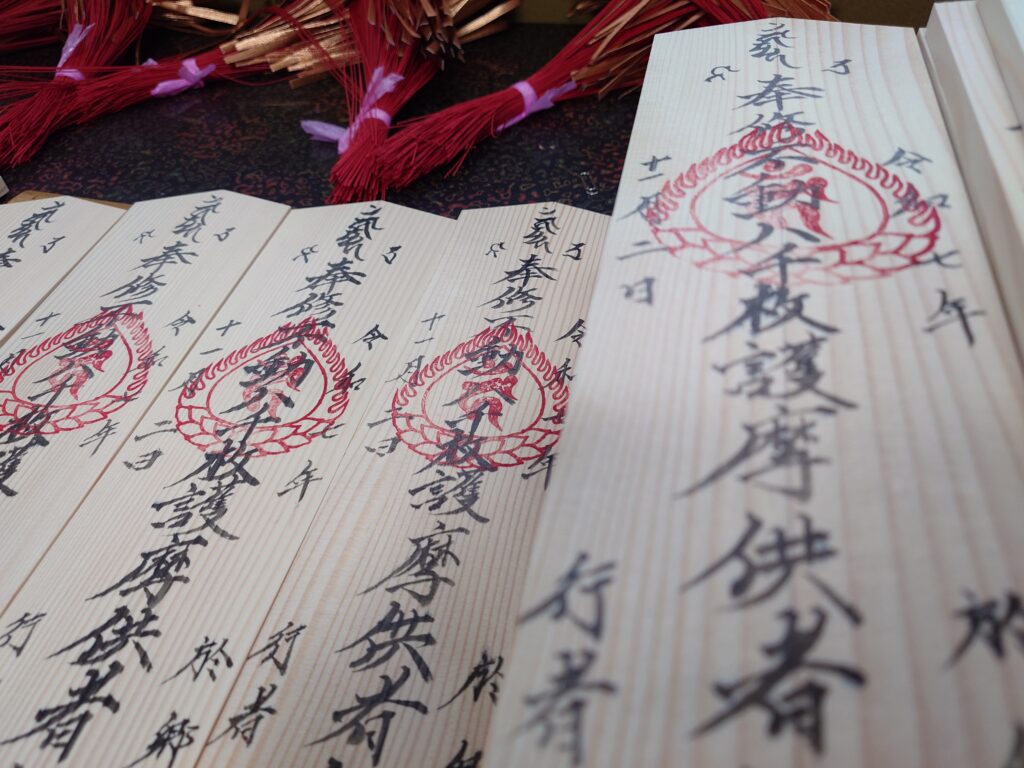 令和七年
於
奉修不動八千枚護摩供者
十一月二日
行者
令和七年
於
奉修不動八千枚護摩供者
十一月二日
行者
令和七年
於郷
奉修不動八千枚護摩供者
十一月二日
行
年
奉修不動八千枚護
十一
奉